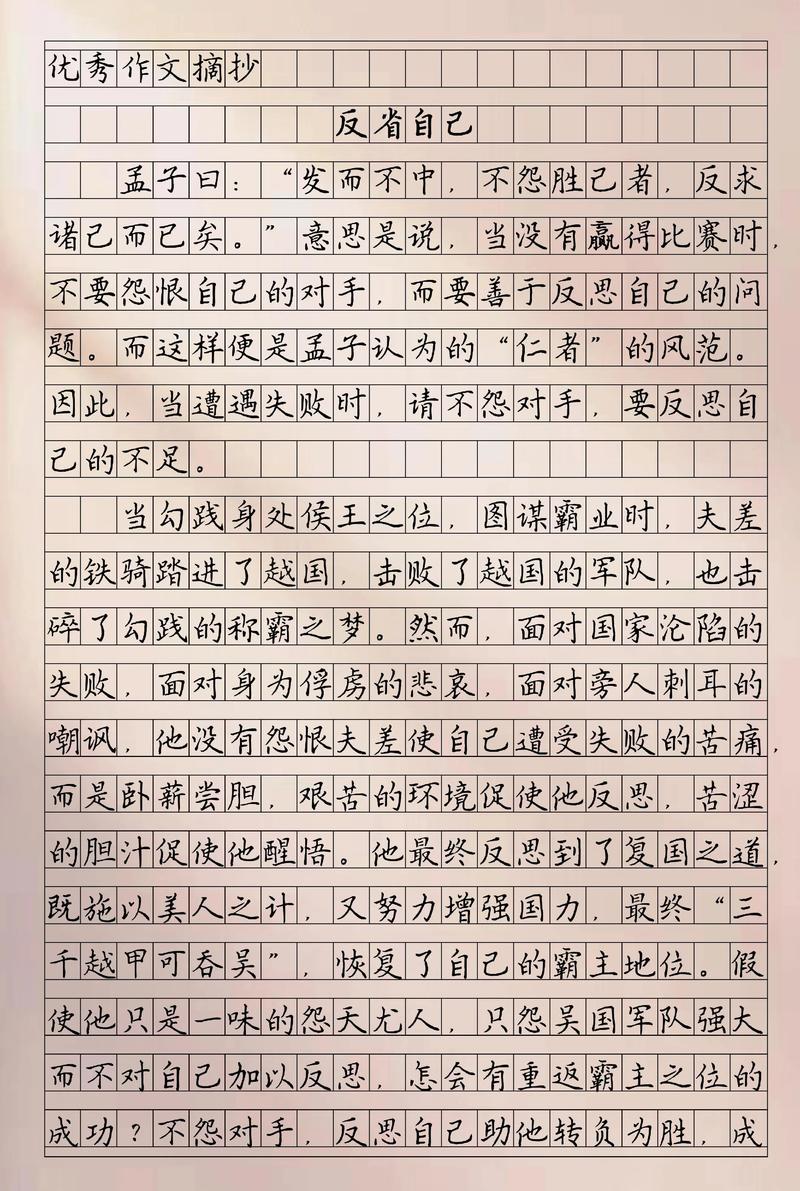 优秀作文摘抄
反省自己
孟子曰：“发而不中，不怨胜己者，反求
诸己而已矣。”意思是说，当没有赢得比赛时，
不要怨恨自己的对手，而要善于反思自己的问
题。而这样便是孟子认为的“仁者”的风范。
因此，当遭遇失败时，请不怨对手，要反思自
己的不足。
当勾践身处侯王之位，图谋霸业时，夫差
的铁骑踏进了越国，击败了越国的军队，也击
碎了勾践的称霸之梦。然而，面对国家沦陷的
失败，面对身为俘虏的悲哀，面对旁人刺耳的
嘲讽，他没有怨恨夫差使自己遭受失败的苦痛，
而是卧薪尝胆，艰苦的环境促使他反思，苦涩
的胆汁促使他醒悟。他最终反思到了复国之道，
既施以美人之计，又努力增强国力，最终“三
千越甲可吞吴”，恢复了自己的霸主地位。假
使他只是一味的怨天尤人，只怨吴国军队强大
而不对自己加以反思，怎会有重返霸主之位的
成功？不怨对手，反思自己助他转负为胜，成